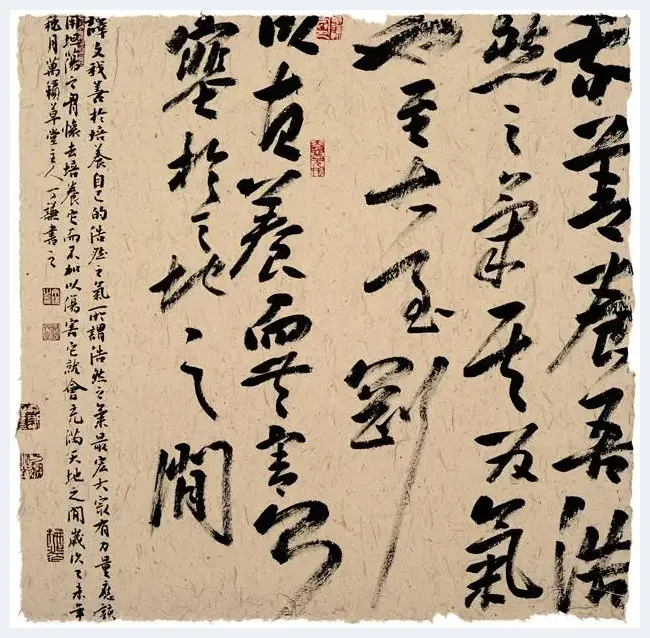 我善養吾浩
然之氣其为氣
也至大至剛
以直養而無害則
塞於天地之間
譯文我善於培養自己的浩然之氣所謂浩然之氣最宏大最有力量應該
用坦蕩之胸懷去培養它而不加以傷害它就會充滿天地之間歲次乙未年
穐月萬籟草堂主人丁謙書之